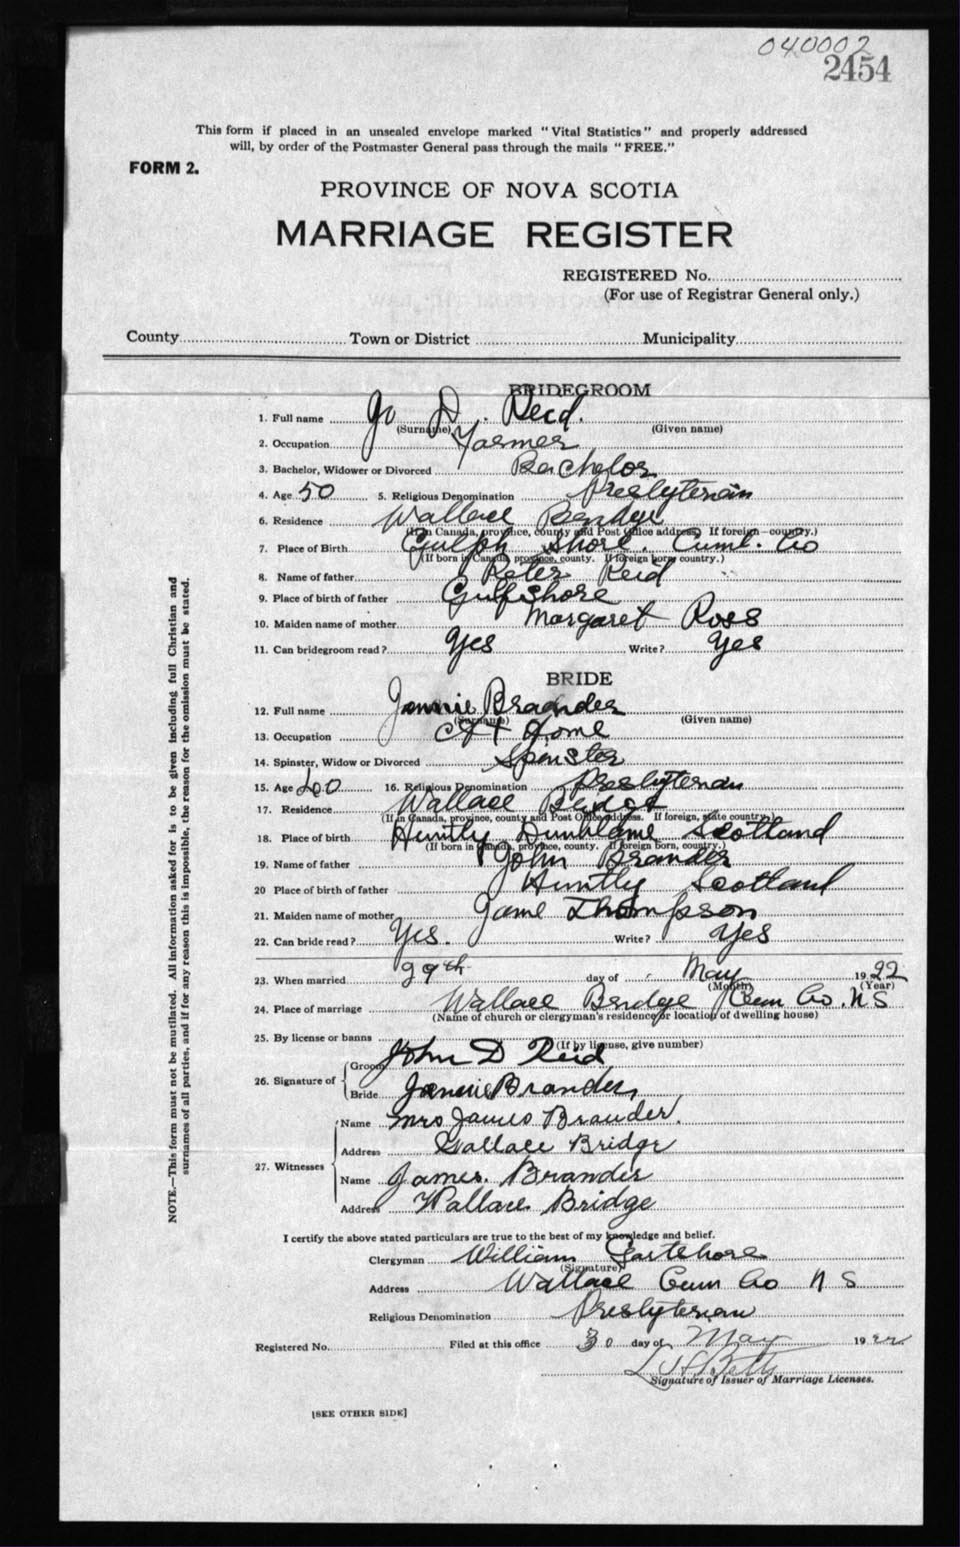 040002
2454
This form if placed in an unsealed envelope marked "Vital Statistics" and properly addressed
will, by order of the Postmaster General pass through the mails "FREE."
FORM 2.
PROVINCE OF NOVA SCOTIA
MARRIAGE REGISTER
REGISTERED No.
(For use of Registrar General only.)
County Town or District Municipality
BRIDEGROOM
1. Full name Jo D. Reid.
(Surname) (Given name)
2. Occupation Farmer
3. Bachelor, Widower or Divorced Bachelor
4. Age 50 5. Religious Denomination Presbyterian
6. Residence Wallace Bridge
(If in Canada, province, county and Post Office address. If foreign—country.)
7. Place of Birth Gulph Shore. Cuml. Co
(If born in Canada, province, county. If foreign born, country.)
8. Name of father Peter Reid
9. Place of birth of father Gulf Shore
10. Maiden name of mother Margaret Ross
11. Can bridegroom read? Yes Write? Yes
BRIDE
12. Full name Jannie Brander
(Surname) (Given name)
13. Occupation At Home
14. Spinster, Widow or Divorced Spinster
15. Age 40 16. Religious Denomination Presbyterian
17. Residence Wallace Bridge
(If in Canada, province, county and Post Office address. If foreign, state country.)
18. Place of birth Huntly Scotland
(If born in Canada, province, county. If foreign born, country.)
19. Name of father John Brander
20 Place of birth of father Huntly Scotland
21. Maiden name of mother Jane Thompson
22. Can bride read? Yes. Write? Yes
23. When married 29th day of May 1922
(Month) (Year)
24. Place of marriage Wallace Bridge Cum Co. N S
(Name of church or clergyman's residence or location of dwelling house)
25. By license or banns
(If by license, give number)
26. Signature of Groom John D Reid
Bride Jannie Brander
27. Witnesses Name Mrs James Brander.
Address Wallace Bridge
Name James. Brander
Address Wallace Bridge
I certify the above stated particulars are true to the best of my knowledge and belief.
Clergyman William
(Signature)
Address Wallace Cum Co N S
Religious Denomination Presbyterian
Registered No. Filed at this office 30 day of May 1922
Betts
Signature of Issuer of Marriage Licenses.
[SEE OTHER SIDE]
NOTE.—This form must not be mutilated. All information asked for is to be given including full Christian and
surnames of all parties, and if for any reason this is impossible, the reason for the omission must be stated.